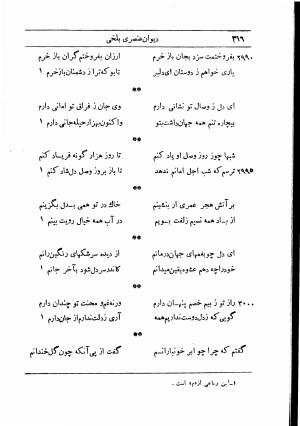 ۳۱۶ دیوان عنصری بلخی
۲۹۹۰ بفروختمت سزد بجان باز خرم ارزان بفروختم گران باز خرم
یاری خواهم ز دوستان ای دلبر تا بو که ترا ز دشمنان باز خرم ۱
**
ای دل ز وصال تو نشانی دارم وی جان ز فراق تو امانی دارم
بیچاره تنم همه جهان داشت بتو واکنون بهزار حیله جانی دارم ۱
**
شبها چو ز روز وصل او یاد کنم تا روز هزار گونه فریاد کنم
۲۹۹۵ ترسم که شب اجل امانم ندهد تا باز بروز وصل دل شاد کنم ۱
**
بر آتش هجر عمری ار بنشینم خاک در تو همی بدل بگزینم
از باد همه نسیم زلفت بویم در آب همه خیال رویت بینم ۱
**
ای دل چو بغمهای جهان درمانم از دیده سرشکهای رنگین رانم
خود را چه دهم عشوه یقین میدانم کاندر سر دل شود بآخر جانم ۱
**
۳۰۰۰ راز تو ز بیم خصم پنهان دارم ورنه غم و محنت تو چندان دارم
گویی که ز دل دوست نداریم همه آری ز دلت ندارم از جان دارم ۱
**
گفتم که چرا چو ابر خونبارانم گفت از پی آنکه چون گل خندانم
۱ــ این رباعی از «م» است .